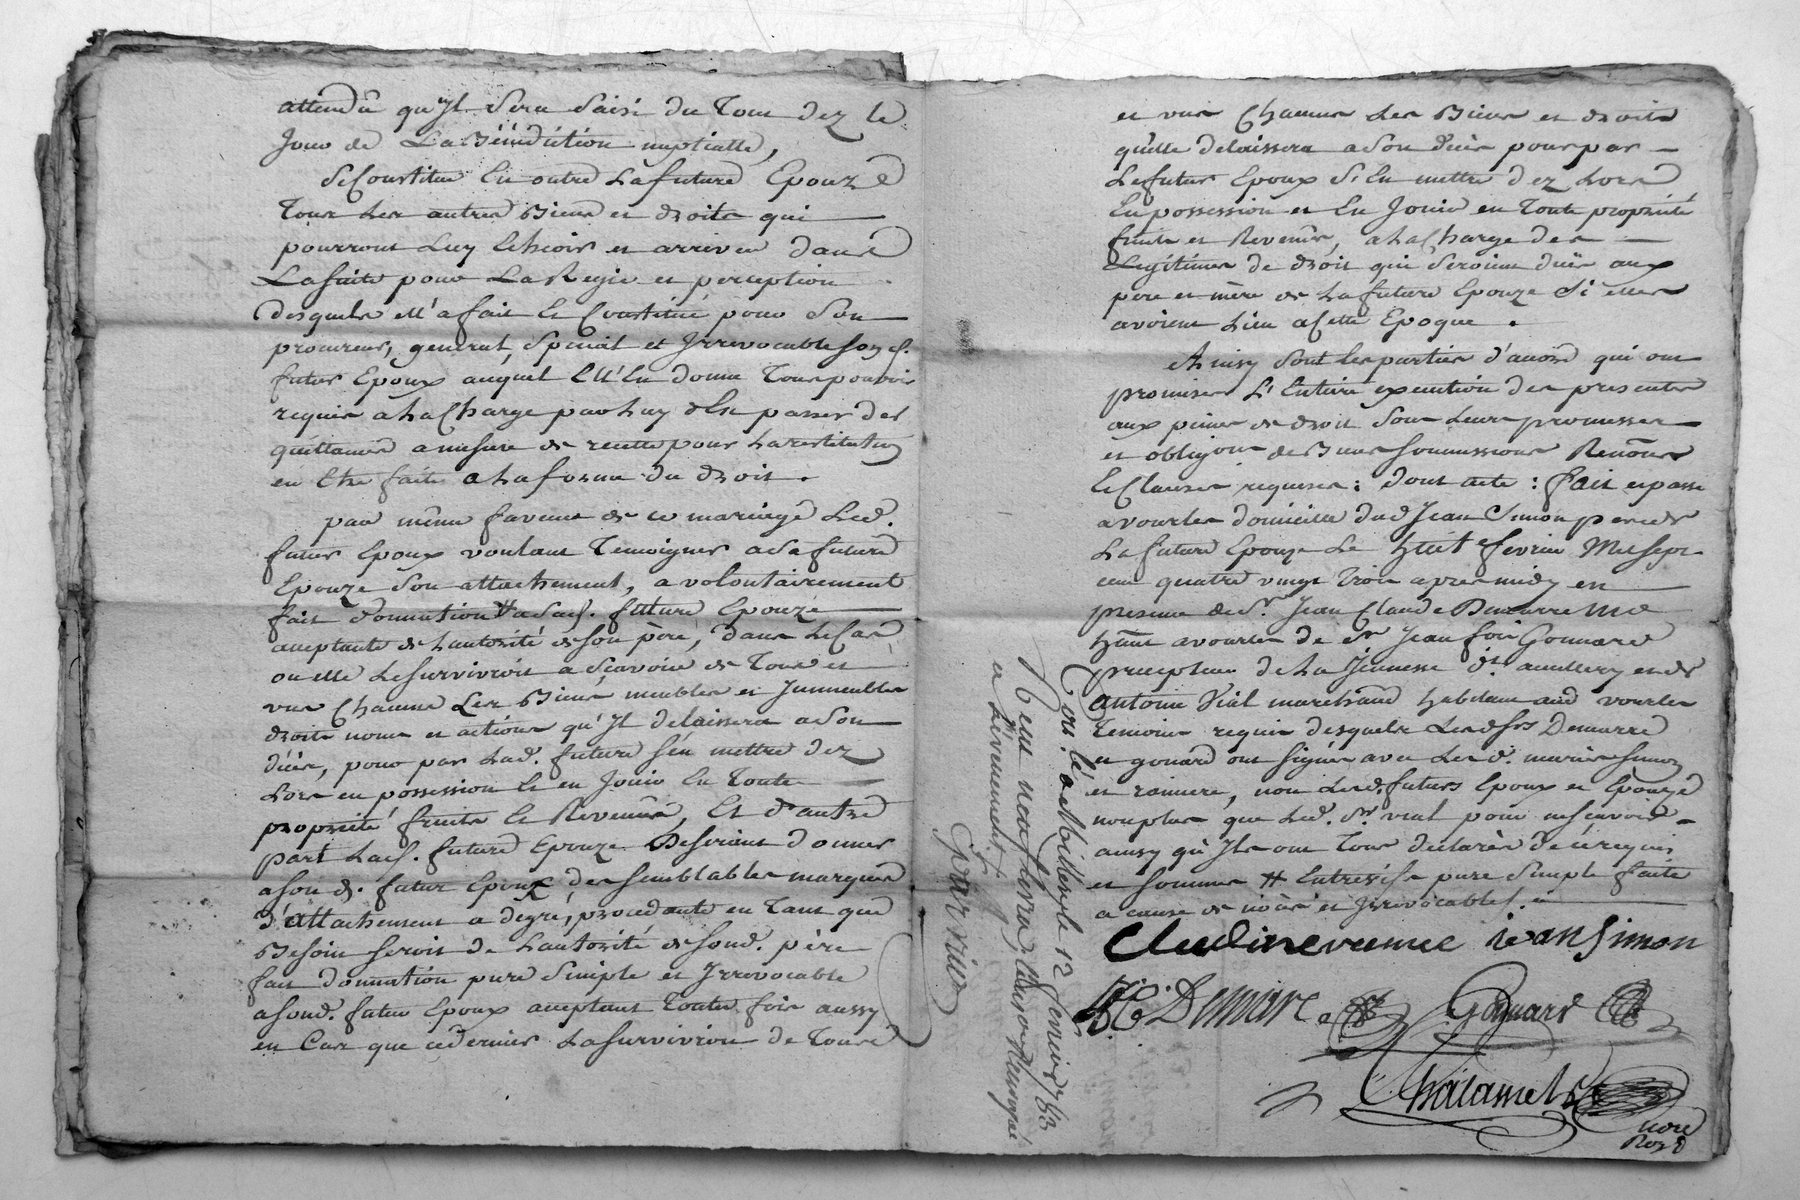 attendû qu'Jl Sera Saisi du Tout dez le
Jour de La Bénédiction nuptialle,
Se Constitue En outre La future Epouze
Tous Les autres Biens et droits qui
pourront Luy Echeoir et arriver dans
La suite pour La Regie et perception
desquels ell'a fait et Constitué pour Son
procureur, general, Special et Jrrevocable Son d.
futur Epoux auquel Ell'En donne Tout pouvoir
requis a La Charge par Luy d'En passer des
quittances a mesure de recette pour La restitution
en Etre faite a La forme du droit.
par même faveur de ce mariage Led.
futur Epoux voulant Temoigner a Sa future
Epouze Son attachement, a volontairement
fait donnation # a Sad. future Epouze
acceptante de L'autorité de Son père, dans Le Cas
ou elle Le Survivroit a Scavoir de Tous et
uns Chacuns Les Biens meubles et Jmmeubles
droits noms et actions qu'Jl delaissera a Son
décès, pour par Lad. future S'en mettre dez
Lors en possession et en Jouir En Toute
propriété fruits et Revenûs, Et d'autre
part Lad. future Epouze Desirant donner
a Son d. futur Epoux des Semblables marques
d'attachement a degré, procedante en Tant que
Besoin Seroit de L'autorité de Sond. père
fait donnation pure Simple et Jrrevocable
a Sond. futur Epoux acceptant Toutes fois aussy
en Cas que ce dernier La Survivroit de Tous
et uns Chacuns Les Biens et droits
qu'elle delaissera a Son décès pour par
Le futur Epoux S'En mettre dez Lors
En possession et En Jouir en Toute propriété
fruits et Revenûs, a La Charge des
Legitimes de droit qui Seroient dües aux
pere et mère de La future Epouze Si elles
avoient Lieu a Cette Epoque.
Ainsy Sont Les parties d'accord qui ont
promises L'Entiere execution des presentes
aux peines de droit Sous Leurs promesses
et obligons de Biens Soumissions Renons
Et Clauses requises: Dont acte: fait et passé
a vourles domicille dud Jean Simon pere de
La future Epouze Le Huit fevrier Mil Sept
cent quatre vingt Trois apres midy en
presence de Sr. Jean Claude
a vourles de Sr Jean fois Gonnard
precepteur de La Jeunesse et de
antoine Vial marchand Habitant aud vourles
Temoins requis desquels
et gonard ont Signés avec Led.
non Lesd. futurs Epoux et Epouze
non plus que Led. Sr. vial pour ne Scavoir
ainsy qu'Jls ont Tous declarés de ce requis
et Sommés # Entrevifs pure Simple faite
a cause de nôces et Jrrevocable.
jean Simon
Gonnard
Chalamel
nore
Royal
Con. lé a Millery le 12 fevrier 83
Reçu
a L'evenement